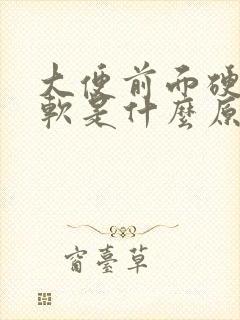 大便前面硬
軟是什麼原
窗臺草